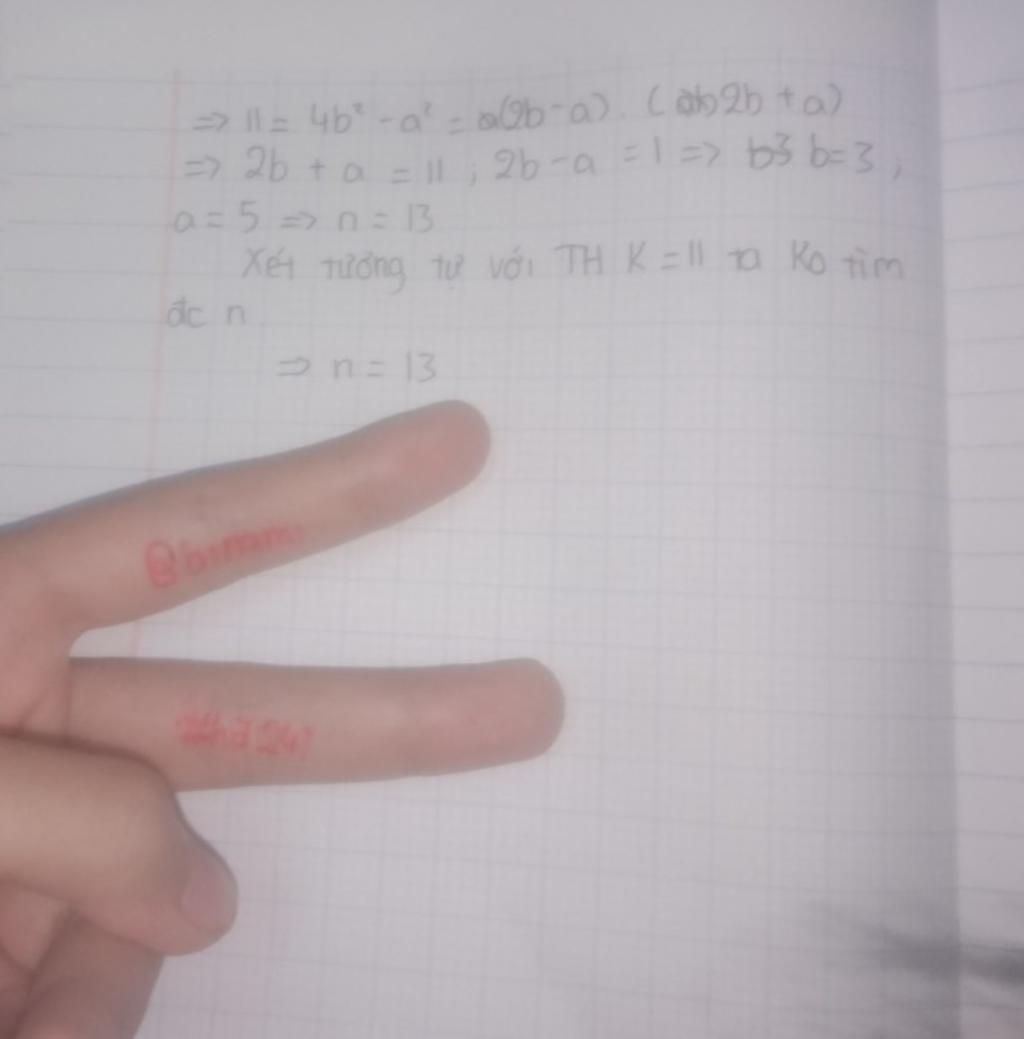 ⇒ 11 = 4b² - a² = (2b - a). (2b + a)
⇒ 2b + a = 11 ; 2b - a = 1 ⇒ b = 3 ,
a = 5 ⇒ n = 13
Xét tương tự với TH K = 11 ta Ko tìm
đc n
⇒ n = 13